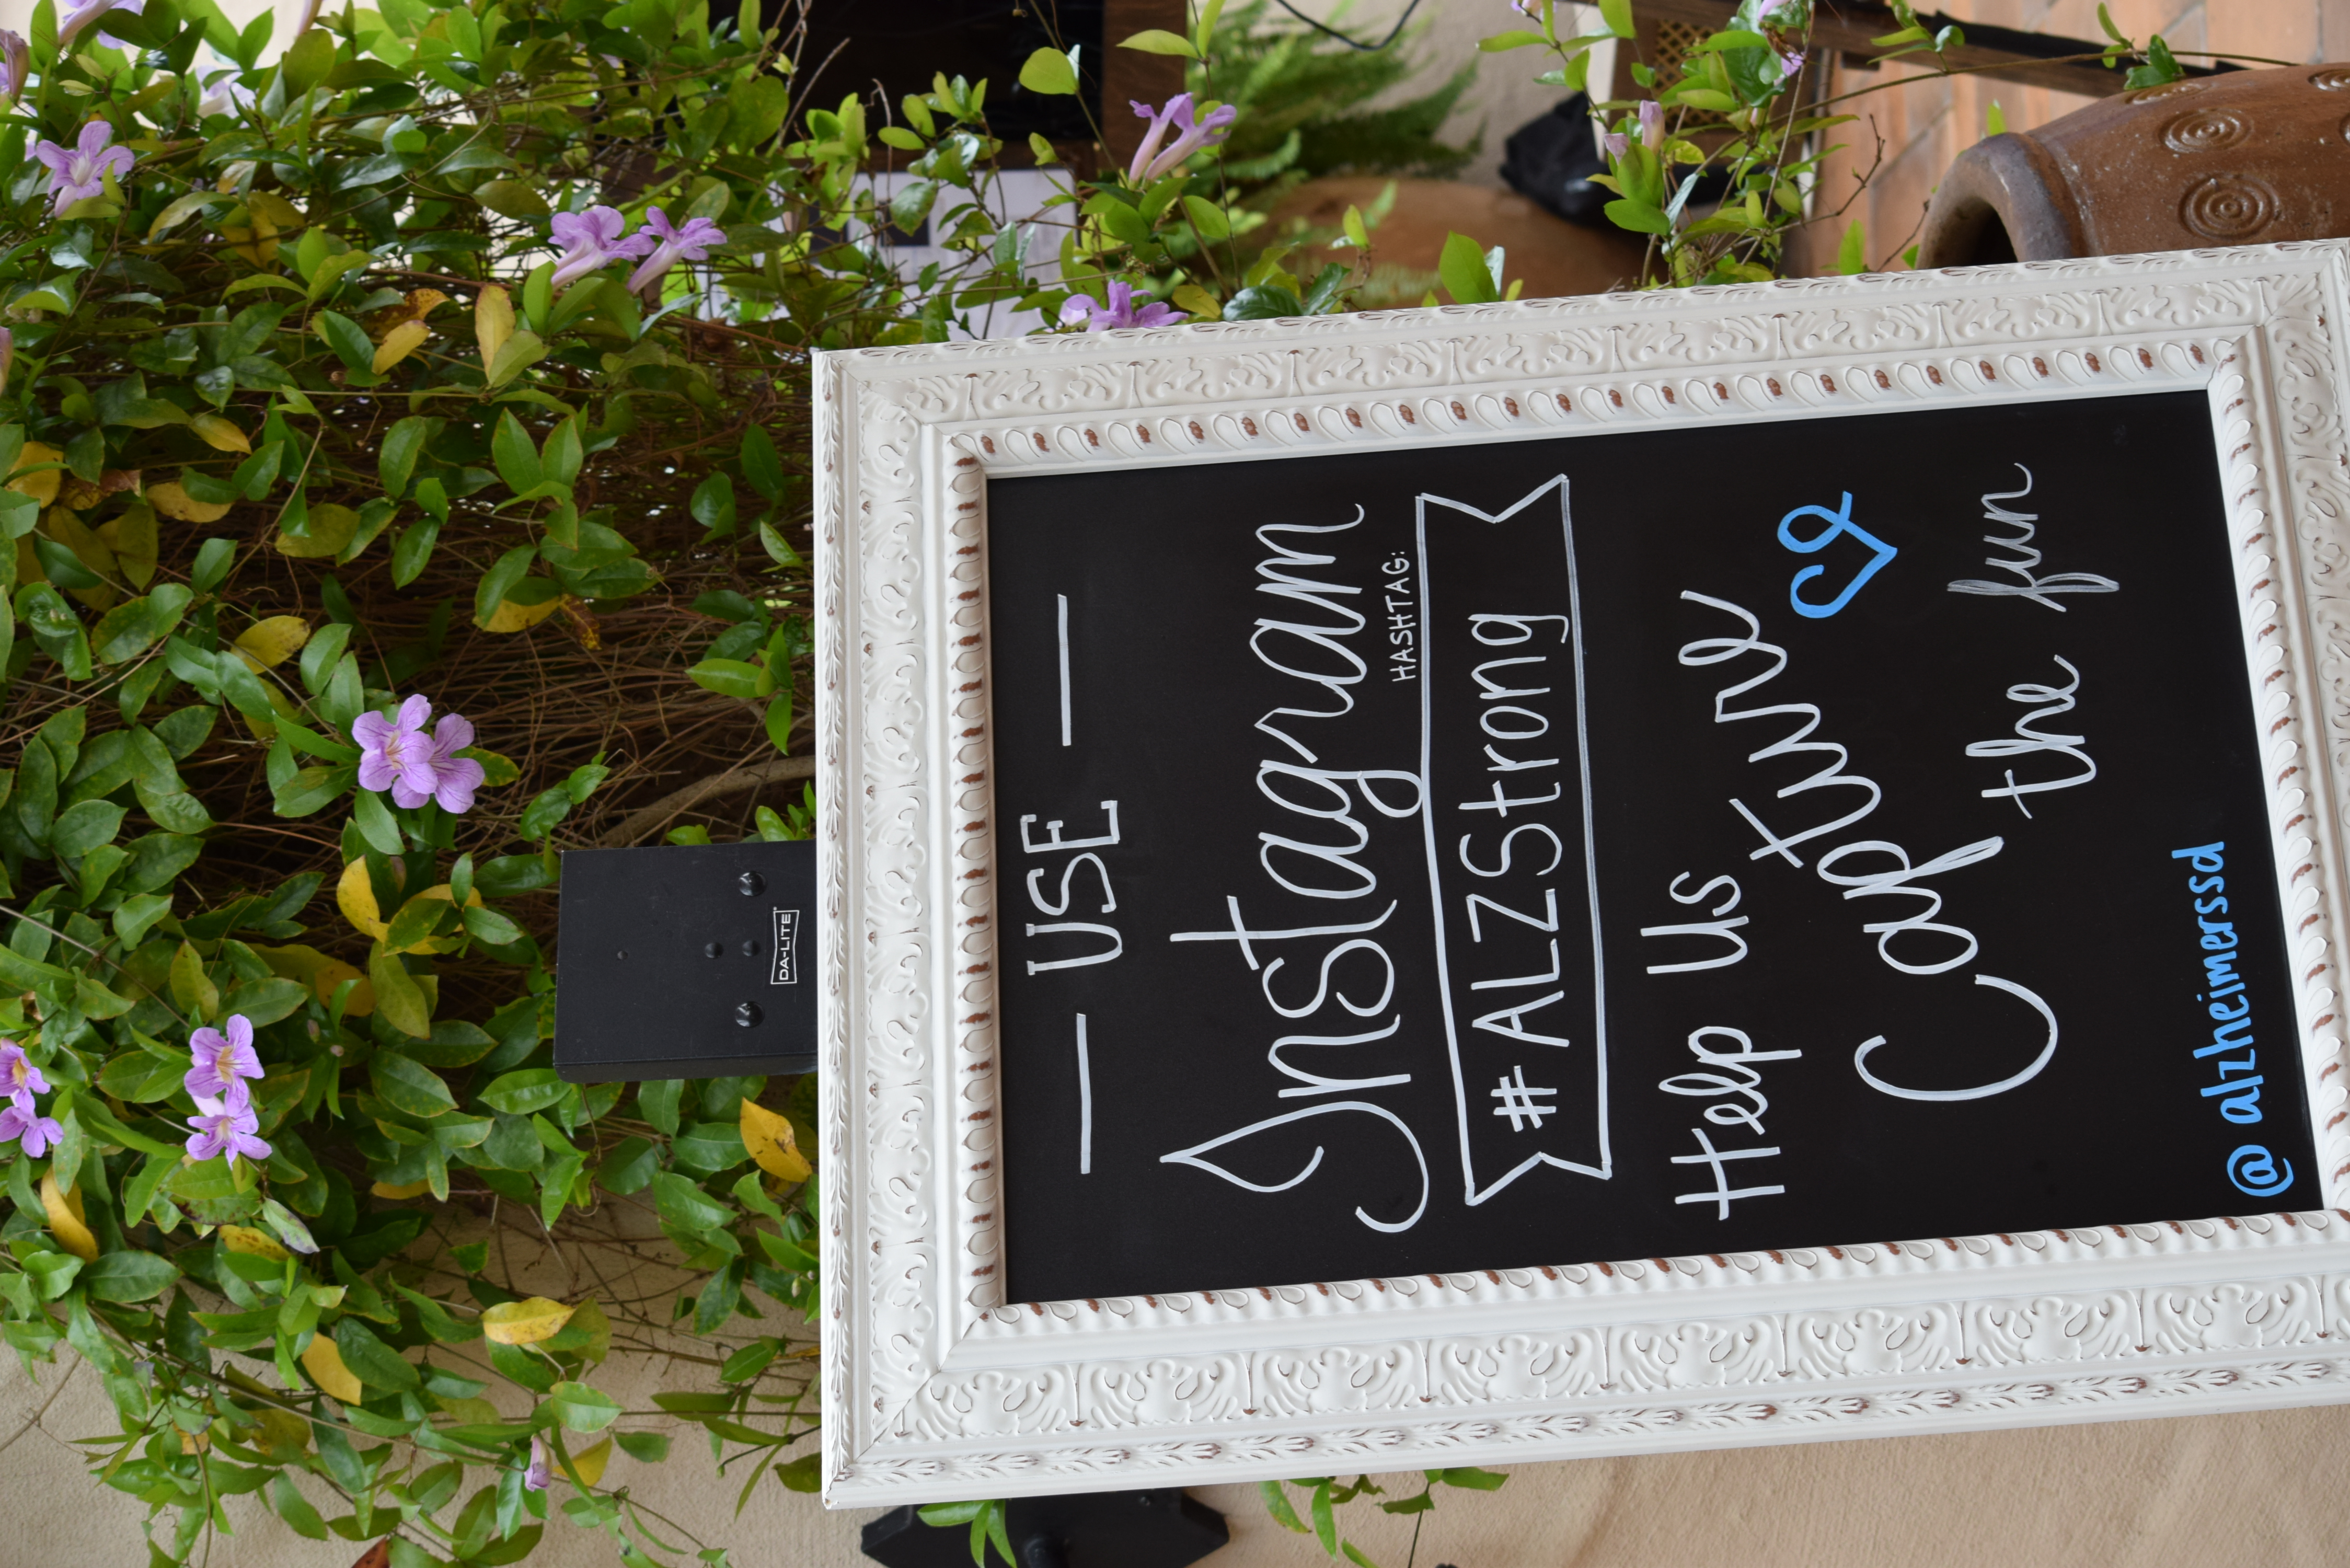 DA-LITE
USE
Instagram
HASHTAG:
#ALZStrong
Help Us
Capture
the fun
@alzheimerssd